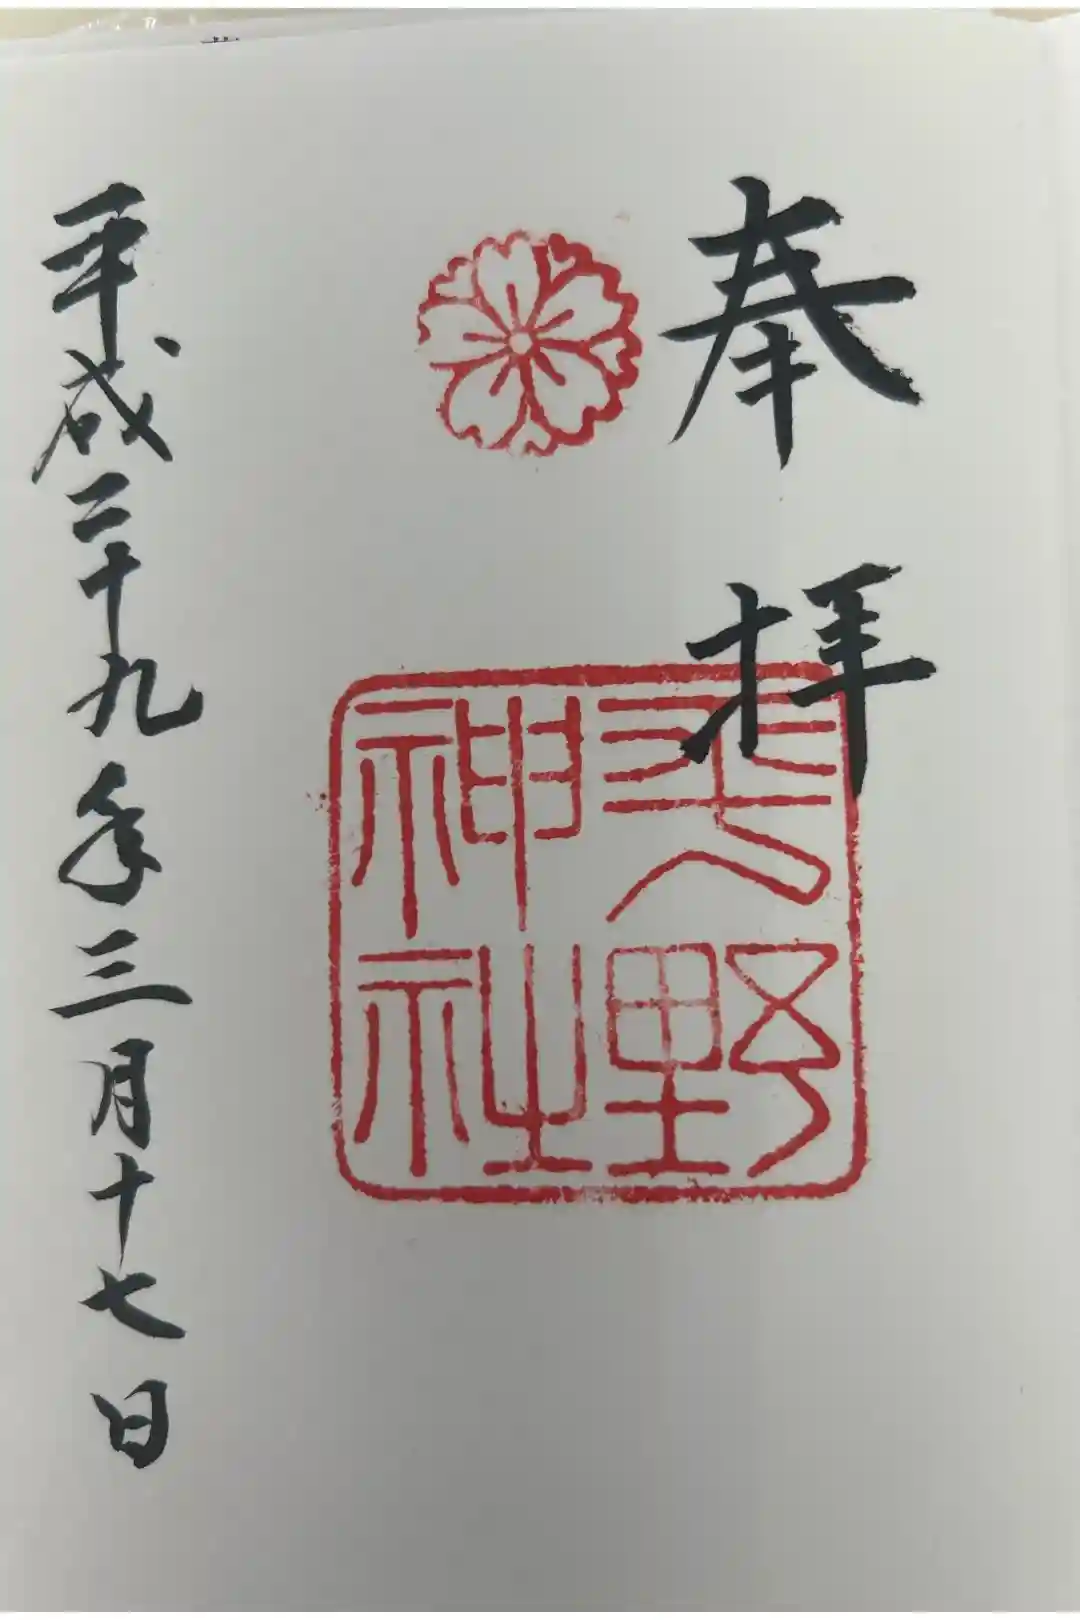 奉拝
平野
神社
平成二十九年三月十七日